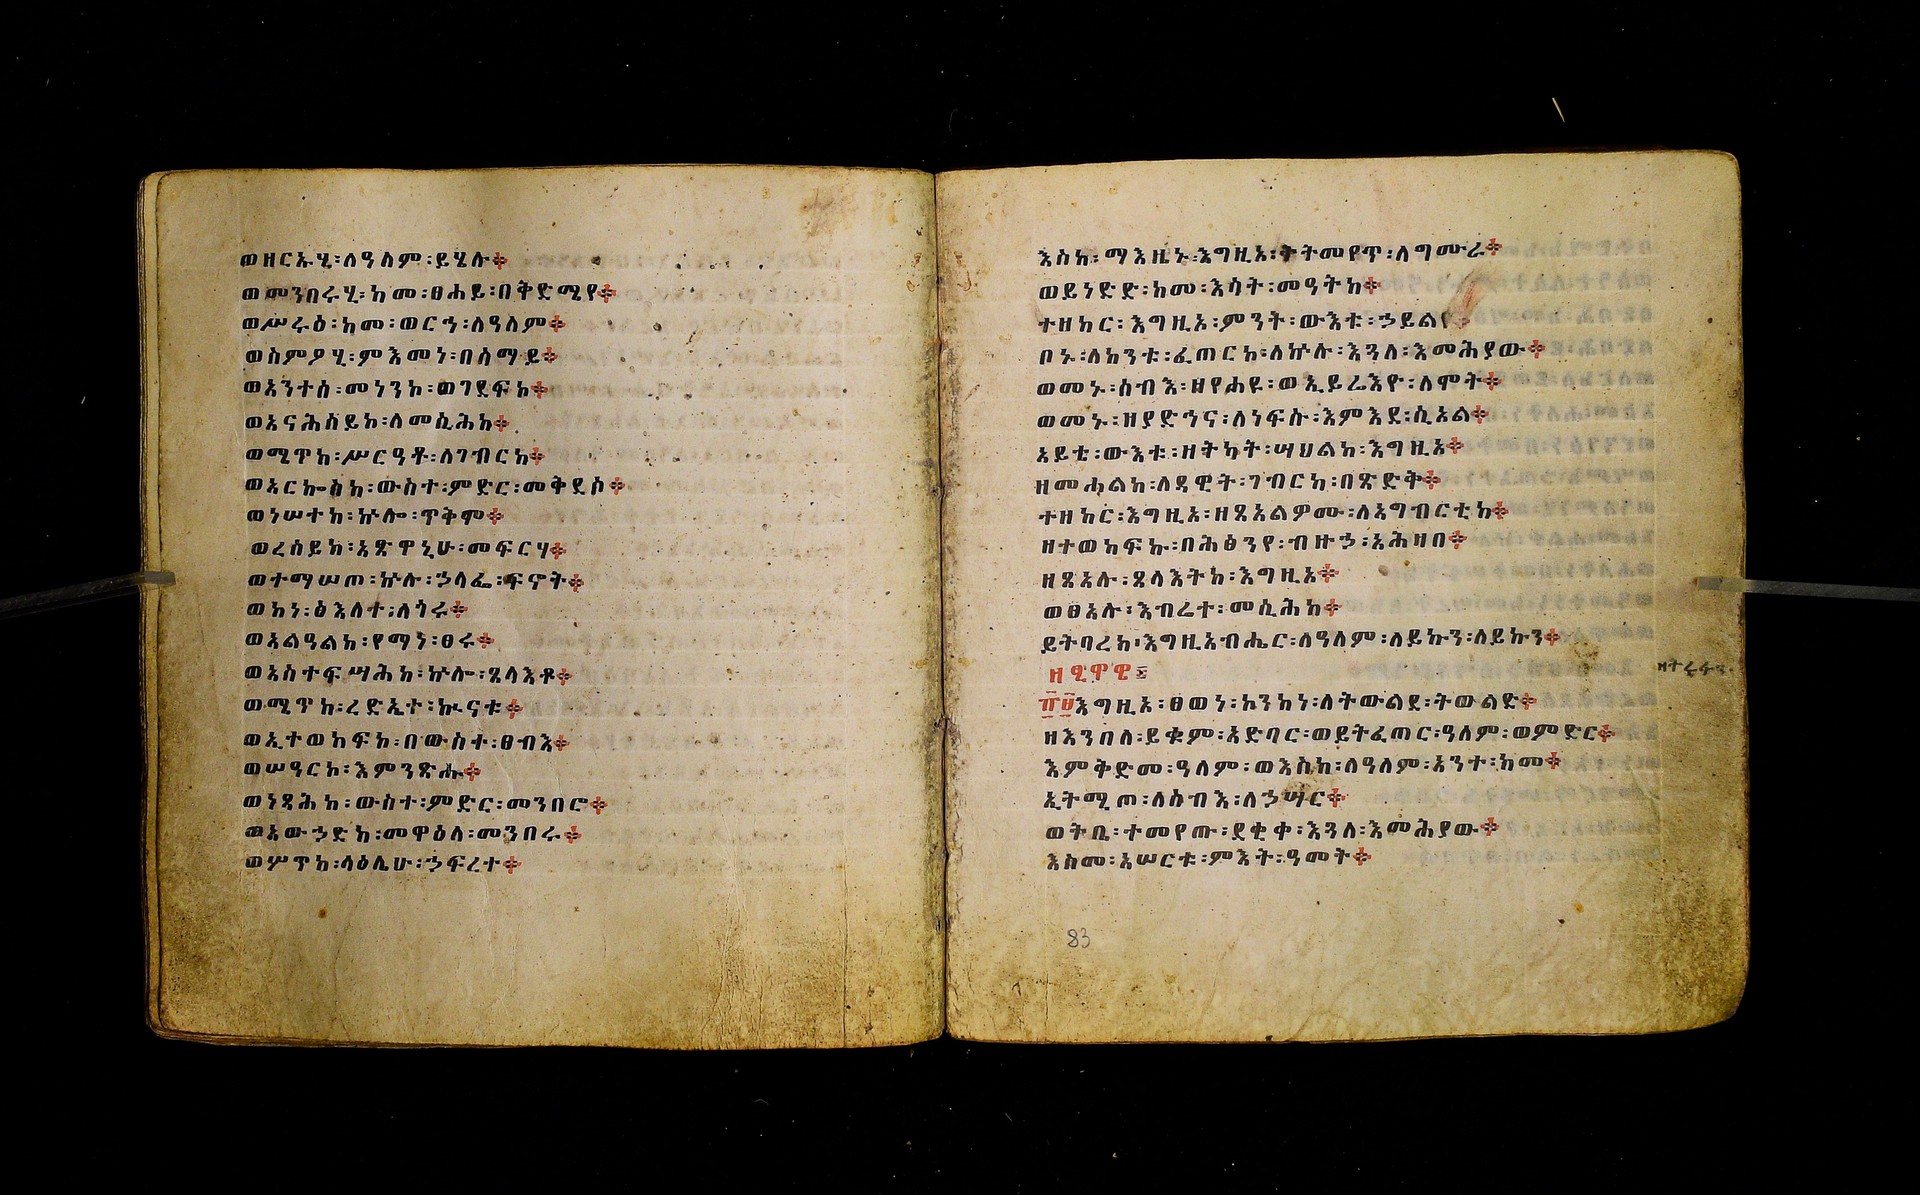 ወዘርኡሂ፡ለዓለም፡ይሄሉ፨
ወመንበሩሂ፡ከመ፡ፀሐይ፡በቅድሜየ፨
ወሥሩዕ፡ከመ፡ወርኅ፡ለዓለም፨
ወስምዖሂ፡ምእመነ፡በሰማይ፨
ወአንተሰ፡መነንከ፡ወገደፍከ፨
ወአናሕሰይከ፡ለመሲሕከ፨
ወሜጥከ፡ሥርዓቶ፡ለገብርከ፨
ወአርኰስከ፡ውስተ፡ምድር፡መቅደሶ፨
ወነሠተከ፡ኵሎ፡ጥቅሞ፨
ወረሰይከ፡አጽዋኒሁ፡መፍርሃ፨
ወተማሠጦ፡ኵሉ፡ኃላፌ፡ፍኖት፨
ወከነ፡ፅእለተ፡ለጎሩ፨
ወአልዓልከ፡የማነ፡ፀሩ፨
ወአስተፍሣሕከ፡ኵሎ፡ጸላእቶ፨
ወሜጥከ፡ረድኤተ፡ኲናቱ፨
ወኢተወከፍከ፡በውስተ፡ፀብእ፨
ወሠዓርከ፡እምንጽሑ፨
ወነጻሕከ፡ውስተ፡ምድር፡መንበሮ፨
ወአውኃድከ፡መዋዕለ፡መንበሩ፨
ወሦጥከ፡ላዕሌሁ፡ኃፍረተ፨
እስከ፡ማእዜኑ፡እግዚአ፡ትትመየጥ፡ለግሙራ፨
ወይነድድ፡ከመ፡እሳት፡መዓትከ፨
ተዘከር፡እግዚአ፡ምንት፡ውእቱ፡ኃይልየ፨
በኑ፡ለከንቱ፡ፈጠርከ፡ለኵሉ፡እጓለ፡እመሕያው፨
ወመኑ፡ሰብእ፡ዘየሐዩ፡ወኢይሬእዮ፡ለሞት፨
ወመኑ፡ዘያድኅና፡ለነፍሱ፡እምእደ፡ሲኦል፨
አይቴ፡ውእቱ፡ዘትካት፡ሣህልከ፡እግዚአ፨
ዘመሐልከ፡ለዳዊት፡ገብርከ፡በጽድቅ፨
ተዘከር፡እግዚአ፡ዘጸአልዎሙ፡ለአግብርቲከ፨
ዘተወከፍኩ፡በሕፅንየ፡ብዙኃ፡አሕዛበ፨
ዘጸአሉ፡ጸላእትከ፡እግዚአ፨
ወፀአሉ፡እብሬተ፡መሲሕከ፨
ይትባረከ፡እግዚአብሔር፡ለዓለም፡ለይኩን፡ለይኩን፨
፹፱እግዚአ፡ፀወነ፡ኮንከነ፡ለትውልደ፡ትውልድ፨
ዘእንበለ፡ይቁም፡አድባር፡ወይትፈጠር፡ዓለም፡ወምድር፨
እምቅድመ፡ዓለም፡ወእስከ፡ለዓለም፡አንተ፡ከመ፨
ኢትሚጦ፡ለሰብእ፡ለኃሣር፨
ወትቤ፡ተመየጡ፡ደቂቀ፡እጓለ፡እመሕያው፨
እስመ፡አሠርቱ፡ምእት፡ዓመት፨
83